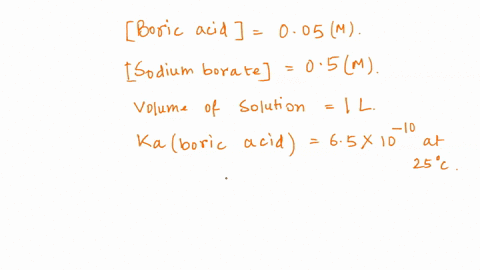 [Boric acid] = 0.05 (M).
[Sodium borate] = 0.5 (M).
Volume of solution = 1 L.
Ka (boric acid) = 6.5 × 10⁻¹⁰ at
25°c.